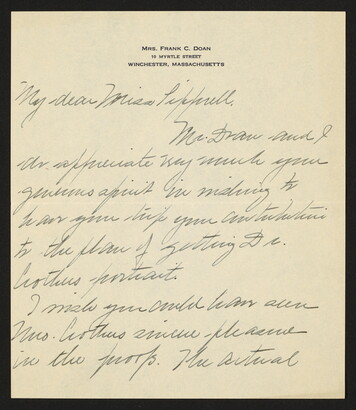 Mrs. Frank C. Doan
15 Myrtle Street
Winchester, Massachusetts
My dear Miss Sipprell,
Mr. Doan and I
do appreciate very much your
generous spirit in wishing to
have your trip your contribution
to the plan of getting Dr.
Crothers portrait.
I wish you could have seen
Mrs. Crothers sincere pleasure
in the proofs. The actual